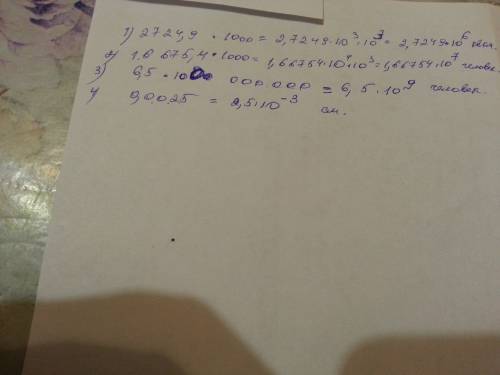 1) 2724,9 · 1000 = 2,7249·10³·10³ = 2,7249·10⁶
2) 16675,4·1000 = 1,66754·10⁴·10³ = 1,66754·10⁷ человек
3) 6,5 · 10 000.000 = 6,5·10⁹ человек.
4 0,0025 = 2,5·10⁻³ см.